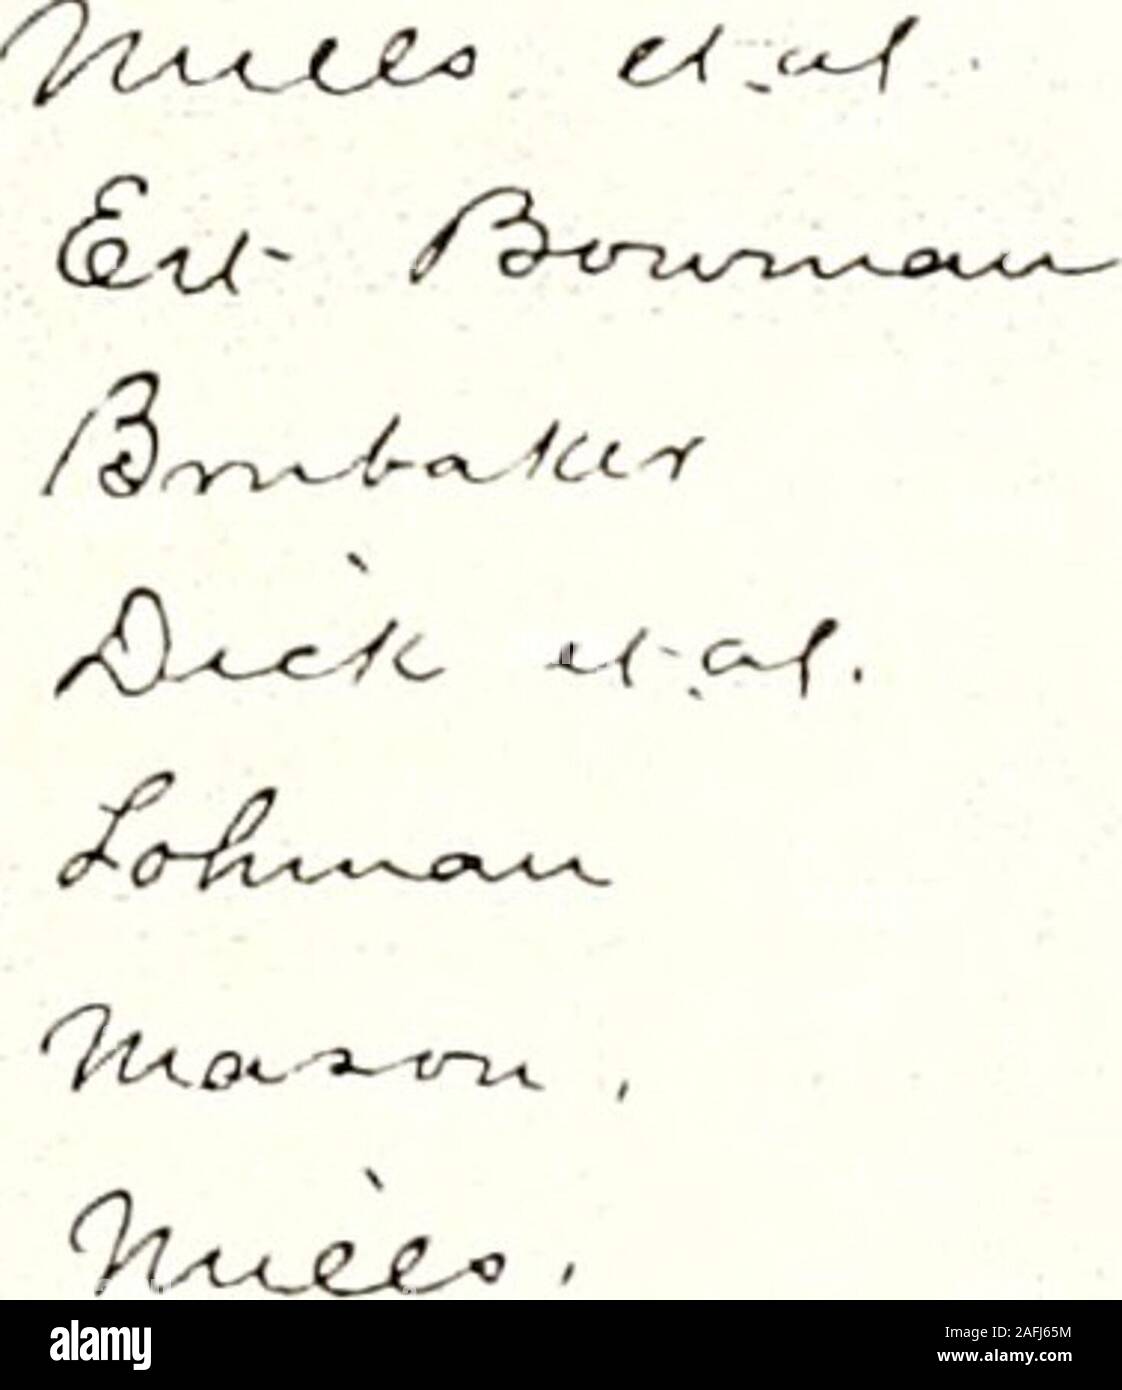 Mills et al.
Est Bowman
Brubaker
Dick et al.
Lohman
Mason.
Mills.
alamy
Image ID: 2AFJ65M
www.alamy.com